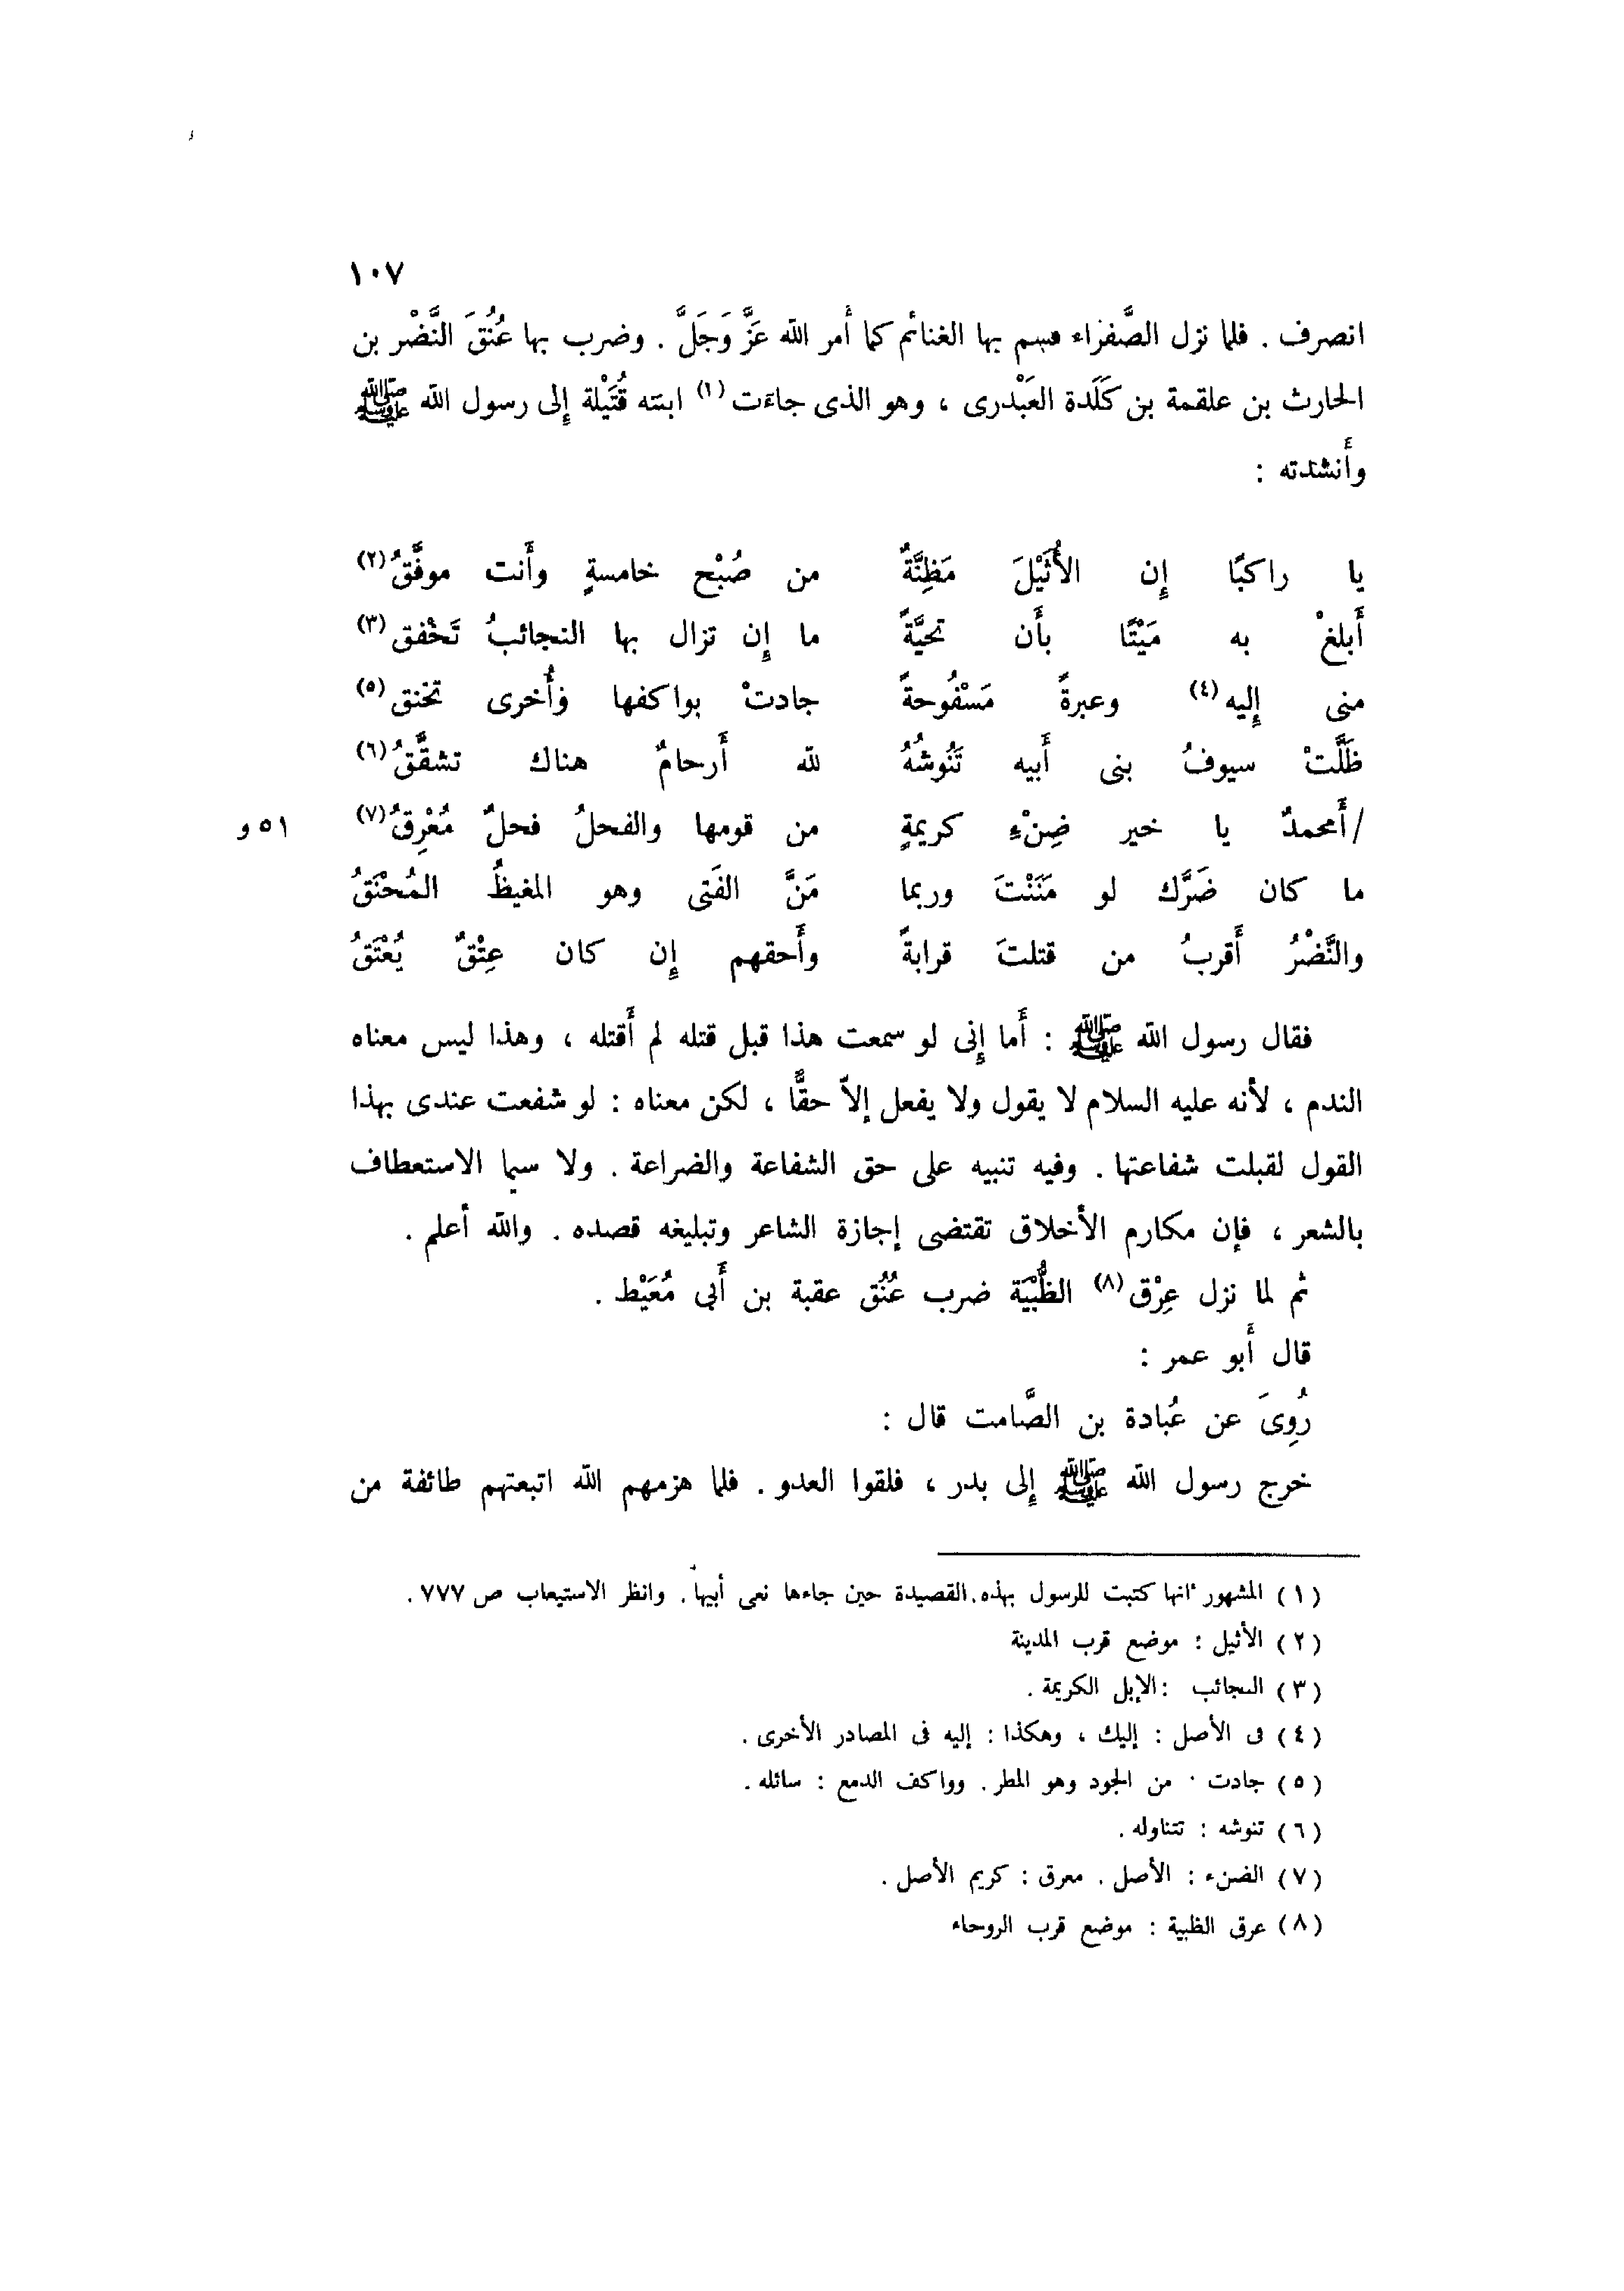 ١٠٧
انصرف . فلما نزل الصَّفراء قسم بها الغنائم كما أمر الله عَزَّ وَجَلَّ . وضرب بها عُنُقَ النَّضْر بن
الحارث بن علقمة بن كَلَدة العَبْدرى ، وهو الذى جاءت (١) ابنته قُتَيْلة إلى رسول الله ﷺ
وأَنشدته :
يا راكبًا إِن الأُثَيْلَ مَظِنَّةٌ من صُبْح خامسةٍ وأَنت موفَّقُ (٢)
أَبلغْ به مَيْتًا بأَن تحيَّةً ما إِن تزال بها النجائبُ تَخْفق (٣)
منى إِليه (٤) وعبرةً مَسْفُوحةً جادتْ بواكفها وأُخرى تخنق (٥)
ظَلَّتْ سيوفُ بنى أَبيه تَنُوشُهُ لله أَرحامٌ هناك تشقَّقُ (٦)
/أَمحمدٌ يا خير ضِنْءِ كريمةٍ من قومها والفحلُ فحلٌ مُعْرِقُ (٧) ٥١ و
ما كان ضَرَّك لو مَنَنْتَ وربما مَنَّ الفَتى وهو المغيظُ المُحْنَقُ
والنَّضْرُ أَقربُ من قتلتَ قرابةً وأَحقهم إِن كان عِتْقٌ يُعْتَقُ
فقال رسول الله ﷺ : أَما إِنى لو سمعت هذا قبل قتله لم أَقتله ، وهذا ليس معناه
الندم ، لأنه عليه السلام لا يقول ولا يفعل إلاّ حقًّا ، لكن معناه : لو شفعت عندى بهذا
القول لقبلت شفاعتها . وفيه تنبيه على حق الشفاعة والضراعة . ولا سيما الاستعطاف
بالشعر ، فإن مكارم الأخلاق تقتضى إجازة الشاعر وتبليغه قصده . والله أعلم .
ثم لما نزل عِرْق (٨) الظُّبْيَة ضرب عُنُق عقبة بن أَبى مُعَيْط .
قال أَبو عمر :
رُوِىَ عن عُبادة بن الصَّامت قال :
خرج رسول الله ﷺ إِلى بدر ، فلقوا العدو . فلما هزمهم الله اتبعتهم طائفة من
(١) المشهور أنها كتبت للرسول بهذه القصيدة حين جاءها نعى أبيها . وانظر الاستيعاب ص ٧٧٧ .
(٢) الأثيل : موضع قرب المدينة
(٣) النجائب : الإبل الكريمة .
(٤) فى الأصل : إليك ، وهكذا : إليه فى المصادر الأخرى .
(٥) جادت : من الجود وهو المطر . وواكف الدمع : سائله .
(٦) تنوشه : تتناوله .
(٧) الضنء : الأصل . معرق : كريم الأصل .
(٨) عرق الظبية : موضع قرب الروحاء